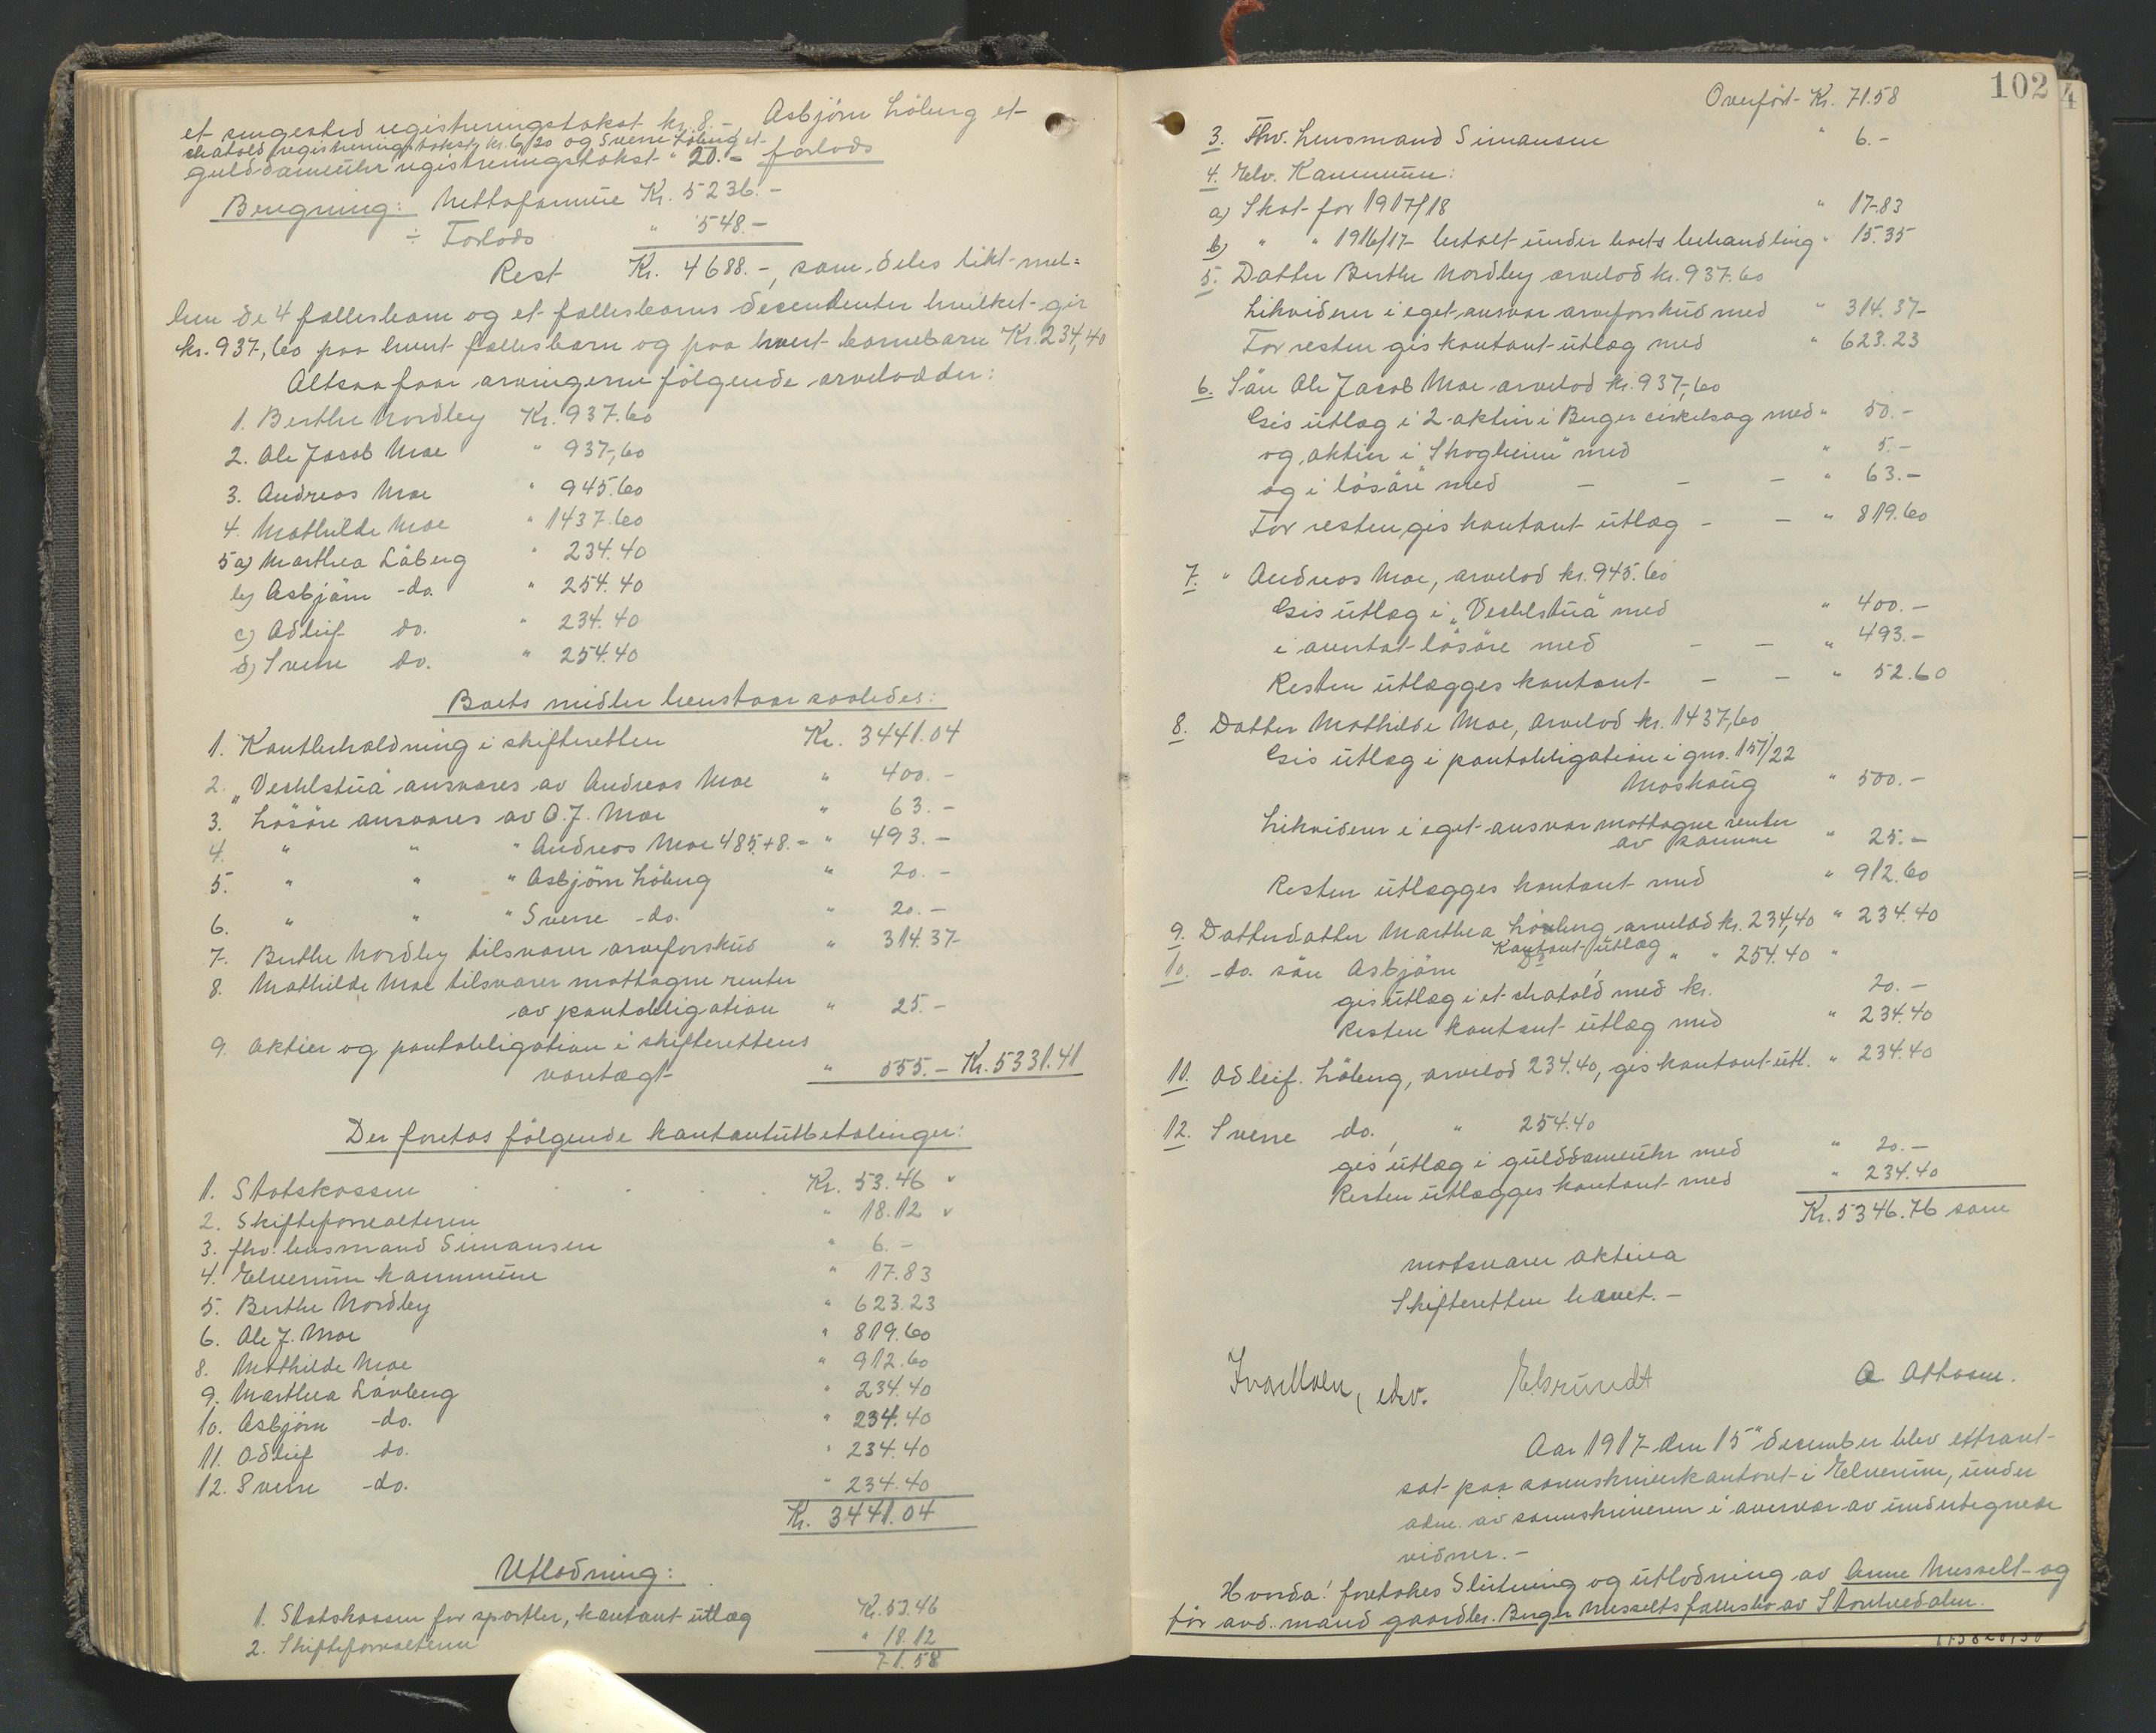 et sengested registreringstakst kr. 8.- Asbjörn Löberg et
chatold registreringstakst kr. 6,20 og Sverre Löberg et
guld-dameuhr registreringstakst " 20.- forlods
Beregning: Nettoformue Kr. 5236.-
÷ Forlods " 548.-
Rest Kr. 4688.-, som deles likt mel-
lem de 4 fællesbarn og et fællesbarns decendenter hvilket gir
kr. 937,60 paa hvert fællesbarn og paa hvert barnebarn Kr. 234,40
Altsaa faar arvingerne følgende arvelodder:
1. Berthe Nordby Kr. 937.60
2. Ole Jacob Moe " 937,60
3. Andreas Moe " 945.60
4. Mathilde Moe " 1437.60
5 a) Marthea Löberg " 234.40
b) Asbjörn -do. " 254.40
c) Adleif do. " 234.40
d) Sverre do. " 254.40
Boets midler henstaar saaledes:
1. Kontbeholdning i skifteretten Kr. 3441.04
2. "Veslestua" ansvares av Andreas Moe " 400.-
3. Lösöre ansvares av O.J. Moe " 63.-
4. " " " Andreas Moe 485.+8.- " 493.-
5. " " " Asbjörn Löberg " 20.-
6. " " " Sverre -do. " 20.-
7. Berthe Nordby tilsvarer arveforskud " 314.37
8. Mathilde Moe tilsvarer mottagne renter
av pantobligation " 25.-
9. Aktier og pantobligation i skifterettens
varetægt " 555.- Kr. 5331.41
Der foretas følgende kontantutbetalinger:
1. Statskassen Kr. 53.46 "
2. Skifteforvalteren " 18.12 "
3. fhv. lensmand Simansen " 6.-
4. Elverum kommune " 17.83
5. Berthe Nordby " 623.23
6. Ole J. Moe " 819.60
8. Mathilde Moe " 912.60
9. Marthea Lövberg " 234.40
10. Asbjörn -do. " 234.40
11. Odleif do. " 234.40
12. Sverre -do. " 234.40
Kr. 3441.04
Utlodning:
1. Statskassen for sportler, kontant utlæg Kr. 53.46
2. Skifteforvalteren " 18.12
71.58
102
4
Overført Kr. 71.58
3. Fhv. Lensmand Simansen " 6.-
4. Elv. Kommune:
a) Skat for 1917/18 " 17.83
b) " " 1916/17 betalt under boets behandling " 15.35
5. Datter Berthe Nordby arvelod kr. 937.60
Likviderer i eget ansvar arveforskud med " 314.37
For resten gis kontant utlæg med " 623.23
6. Sön Ole Jacob Moe arvelod kr. 937,60
Gis utlæg i 2 aktier i Berger cirkelsag med " 50.-
og aktier i "Skogheim" med " 5.-
og i lösöre med - - - " 63.-
For resten gis kontant utlæg - - " 819.60
7. " Andreas Moe, arvelod kr. 945.60
Gis utlæg i "Veslestua" med " 400.-
i avertat lösöre med - - " 493.-
Resten utlægges kontant - - " 52.60
8. Datter Mathilde Moe, arvelod kr. 1437,60
Gis utlæg i pantobligation i gno. 157/22
Moshaug " 500.-
Likviderer i eget ansvar mottagne renter
av samme " 25.-
Resten utlægges kontant med " 912.60
9. Datterdatter Marthea Lövberg, arvelod kr. 234,40 " 234.40
Kontant utlæg
10. -do. sön Asbjörn " " 254.40 "
gis utlæg i et chatold med kr. 20.-
Resten kontant utlæg med " 234.40
11. Odleif Löberg, arvelod 234.40, gis kontant utl. " 234.40
12. Sverre do., " 254.40
gis utlæg i gulddameuhr med " 20.-
Resten utlægges kontant med " 234.40
Kr. 5346.76 som
motsvarer aktiva
Skifteretten hævet.-
Ivar Moen, edsv. E. Grundt O Ottosen.
Aar 1917 den 15" december blev extraret
sat paa sorenskriverkontoret i Elverum, under
adm. av sorenskriveren i overvær av undertegnede
vidner.-
Hvorda! foretokes Slutning og utlodning av Anne Messelt og
før avd. mand gaardbr. Berger Messelts fællesbo av Storelvedalen.